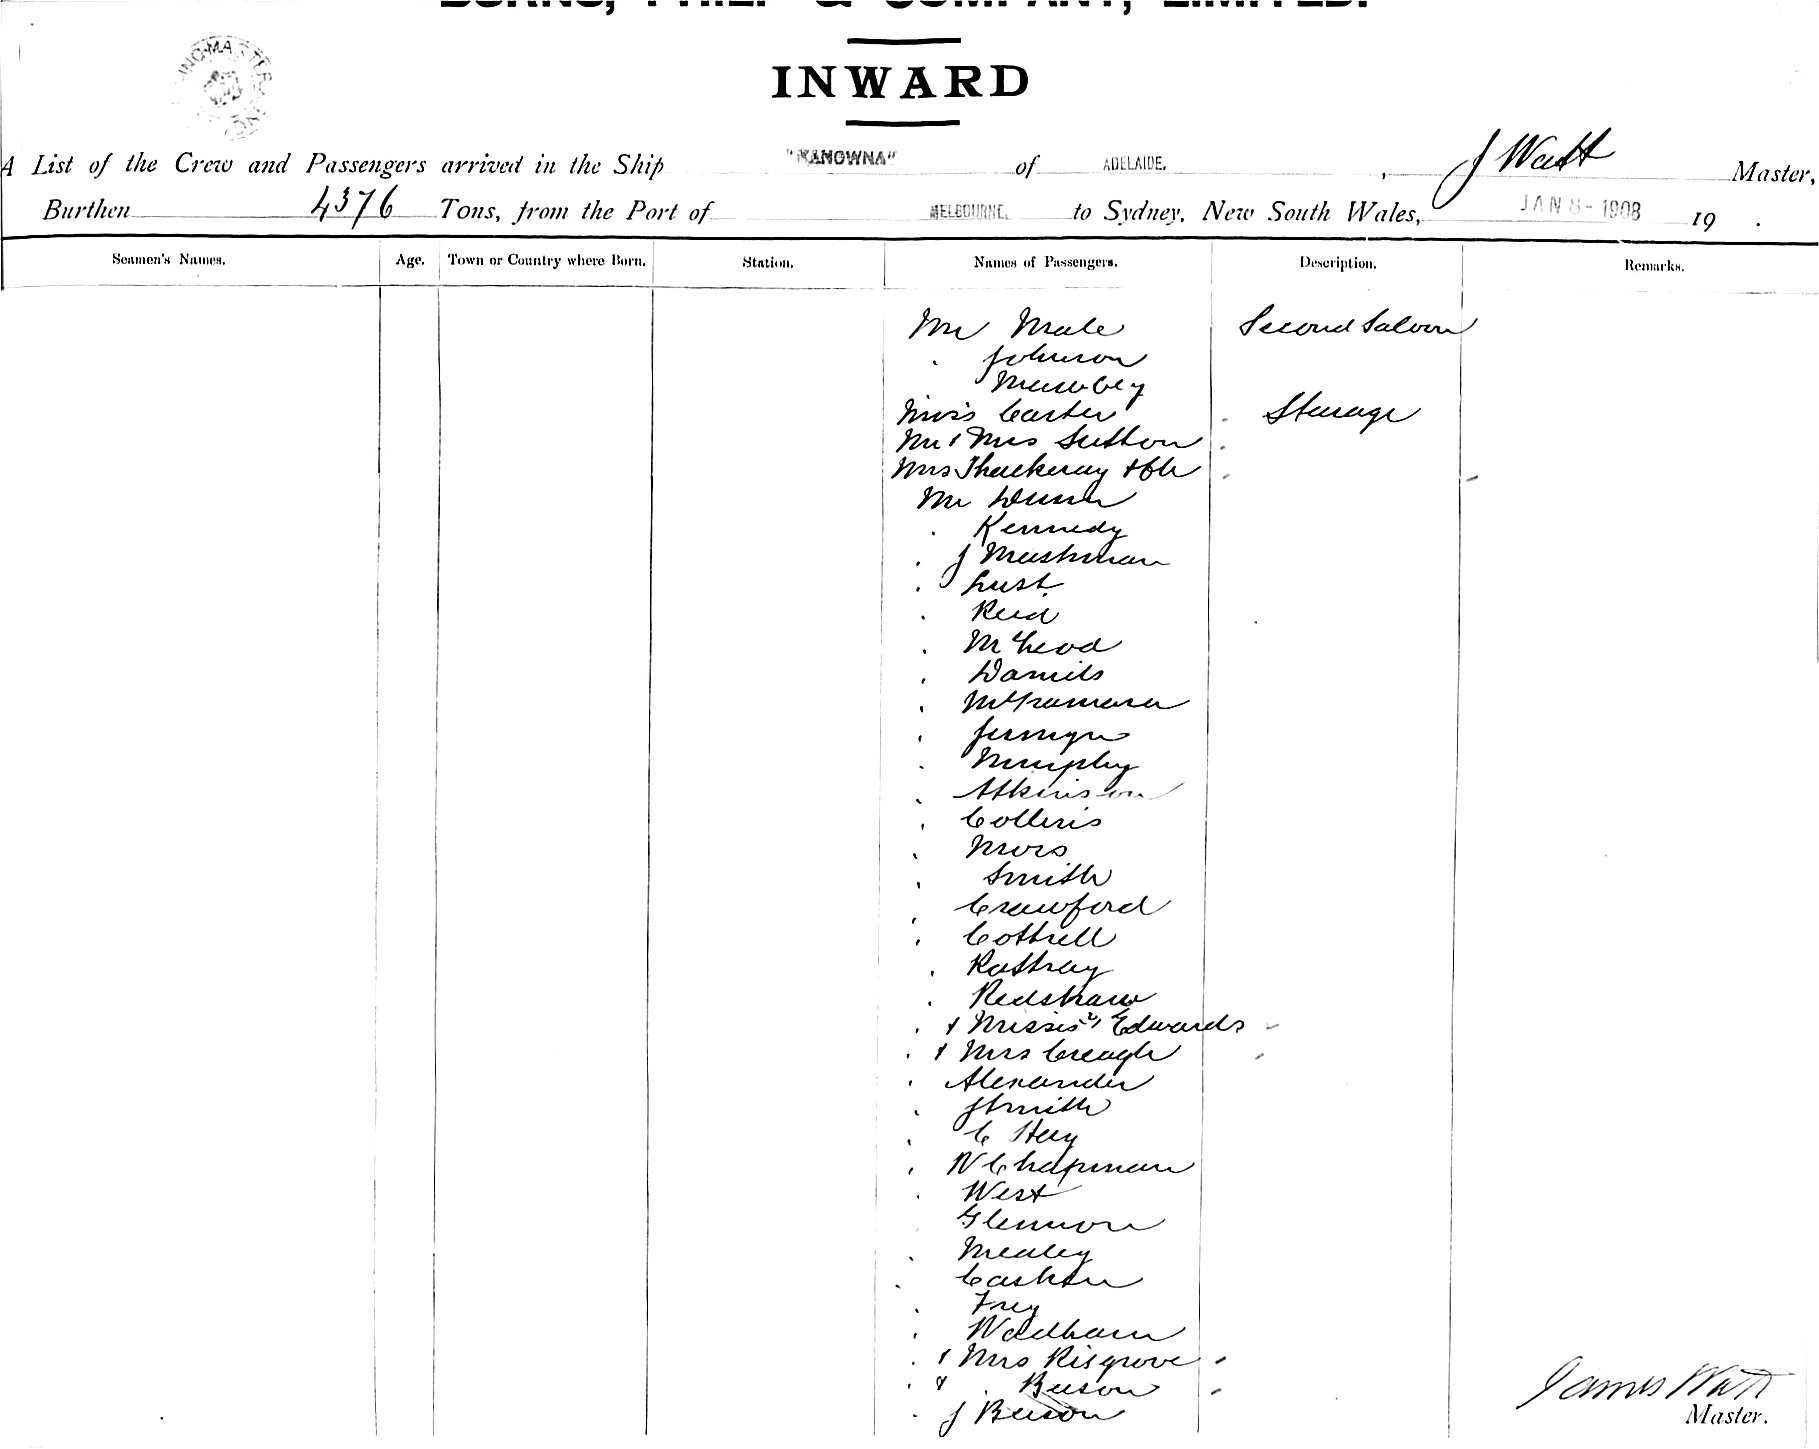 BURNS, PHILP & COMPANY, LIMITED.
INWARD
A List of the Crew and Passengers arrived in the Ship "KANOWNA" of ADELAIDE. , J Watt Master,
Burthen 4376 Tons, from the Port of MELBOURNE. to Sydney, New South Wales, JAN 8-1908 19 .
Seamen's Names. Age. Town or Country where Born. Station. Names of Passengers. Description. Remarks.
Mr Male Second Saloon
Johnson
Miss Carter Steerage
Mr & Mrs Sutton
Mrs Thackeray & Ch
Mr Dunn
Kennedy
J Mushman
Lust
Reid
McLeod
Daniels
McNamara
Jermyn
Murphy
Atkinson
Collins
Moss
Smith
Crawford
Cottrell
Rattray
Redshaw
& Misses 2 Edwards
& Mrs Creagh
Alexander
J Smith
C Hay
W Chapman
West
Glennon
Mealey
Frey
Wadham
& Mrs Risgrove
& Beeson
J Beeson
James Watt
Master.